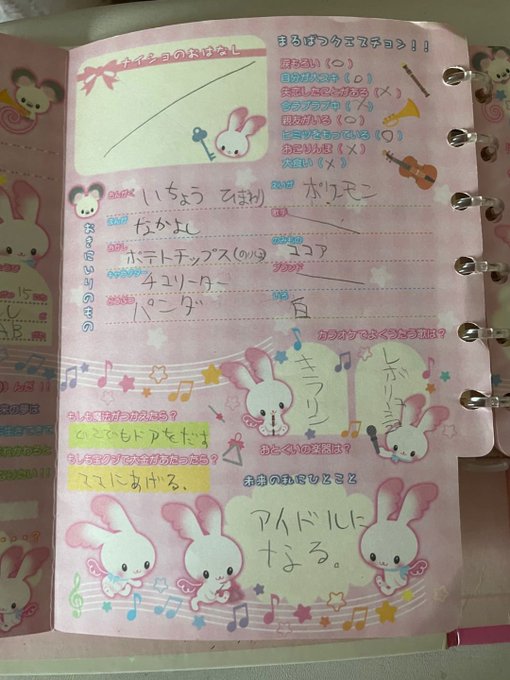 ナイショのおはなし
まるばつクエスチョン!!
涙もろい(○)
自分が大スキ(○)
失恋したことがある(×)
今ラブラブ中(×)
親友がいる(○)
ヒミツをもっている(○)
おこりんぼ(×)
大食い(×)
おきにいりのもの
おんがく いちょう ひまわり
えいが ポケモン
まんが なかよし
歌手
おかし ポテトチップス(のりしお)
のみもの ココア
キャラクター チユリーター
ブランド
どうぶつ パンダ
いろ 白
カラオケでよくうたう歌は?
キラリン
レボリューション
もしも魔法がつかえたら?
どこでもドアをだす
おとくいの楽器は?
もしも宝クジで大金があたったら?
ママにあげる。
未来の私にひとこと
アイドルに
なる。
15
AB